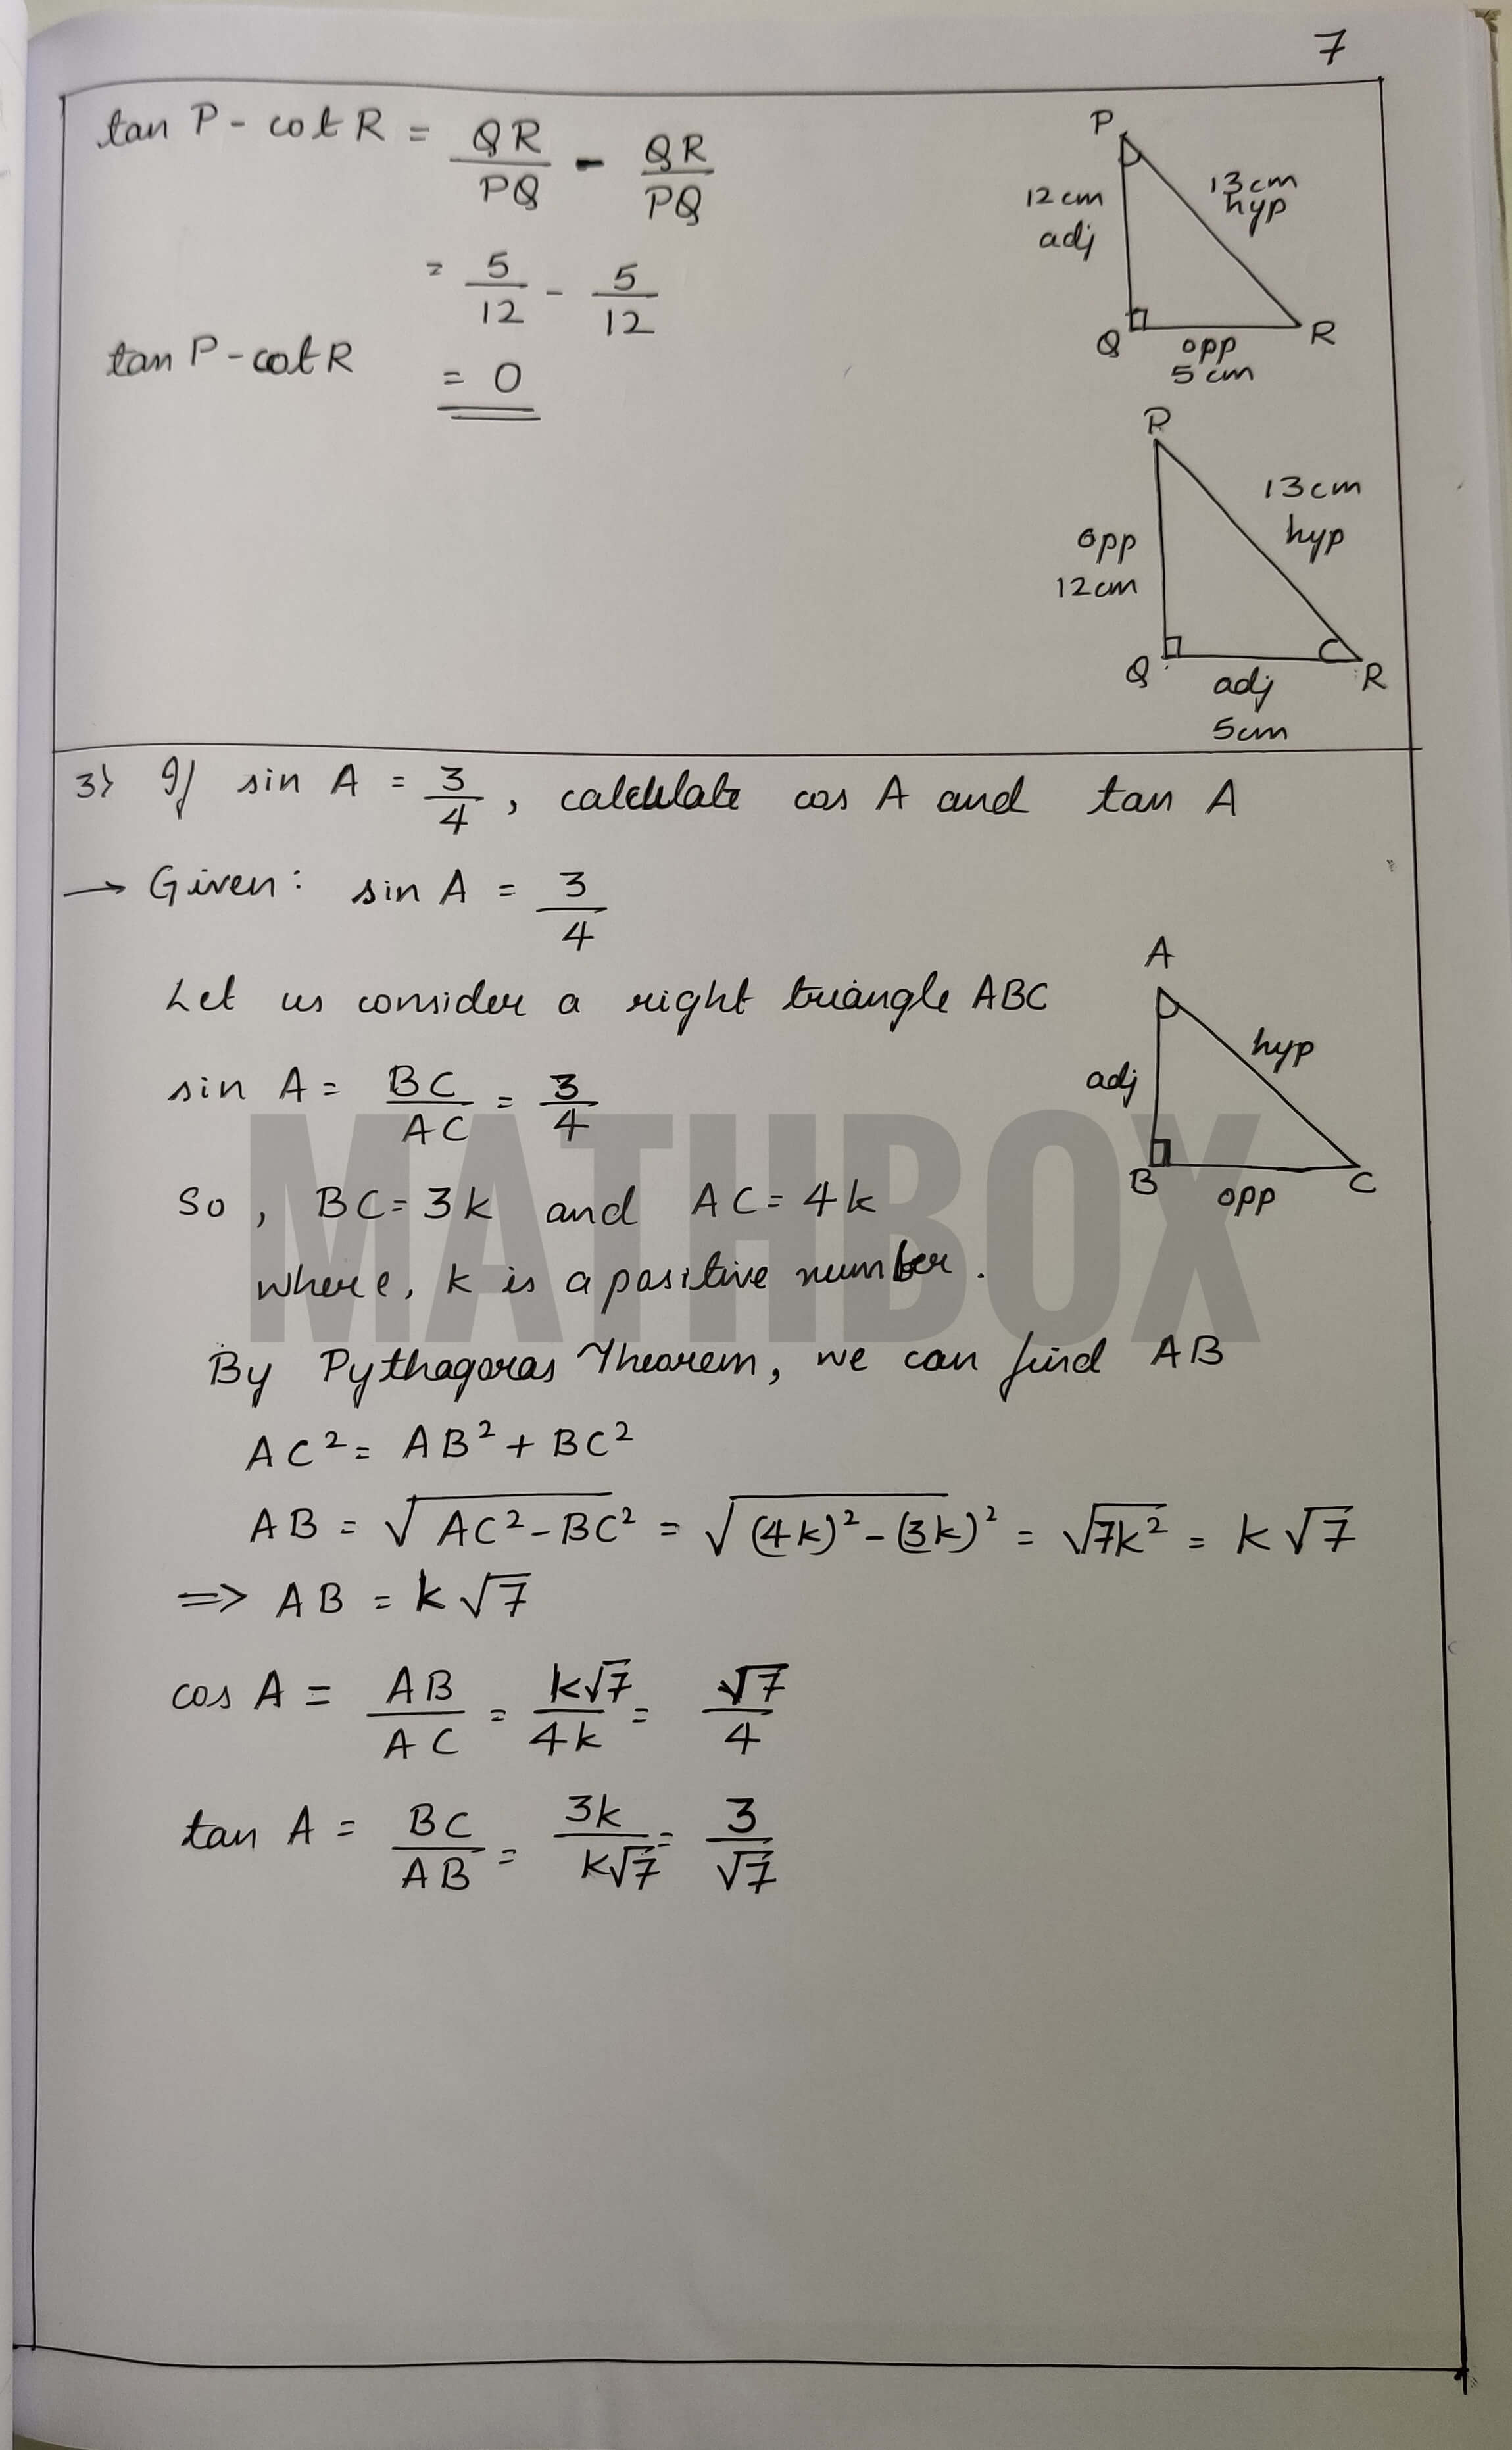 7
tan P - cot R = QR/PQ - QR/PQ
= 5/12 - 5/12
tan P - cot R = 0
P
12 cm
adj
13 cm
hyp
Q
opp
5 cm
R
P
opp
12 cm
13 cm
hyp
Q
adj
5 cm
R
3) If sin A = 3/4, calculate cos A and tan A
→ Given: sin A = 3/4
Let us consider a right triangle ABC
sin A = BC/AC = 3/4
So, BC = 3k and AC = 4k
where, k is a positive number.
A
adj
hyp
B
opp
C
MATHBOX
By Pythagoras Theorem, we can find AB
AC² = AB² + BC²
AB = √AC² - BC² = √(4k)² - (3k)² = √7k² = k√7
⇒ AB = k√7
cos A = AB/AC = k√7/4k = √7/4
tan A = BC/AB = 3k/k√7 = 3/√7